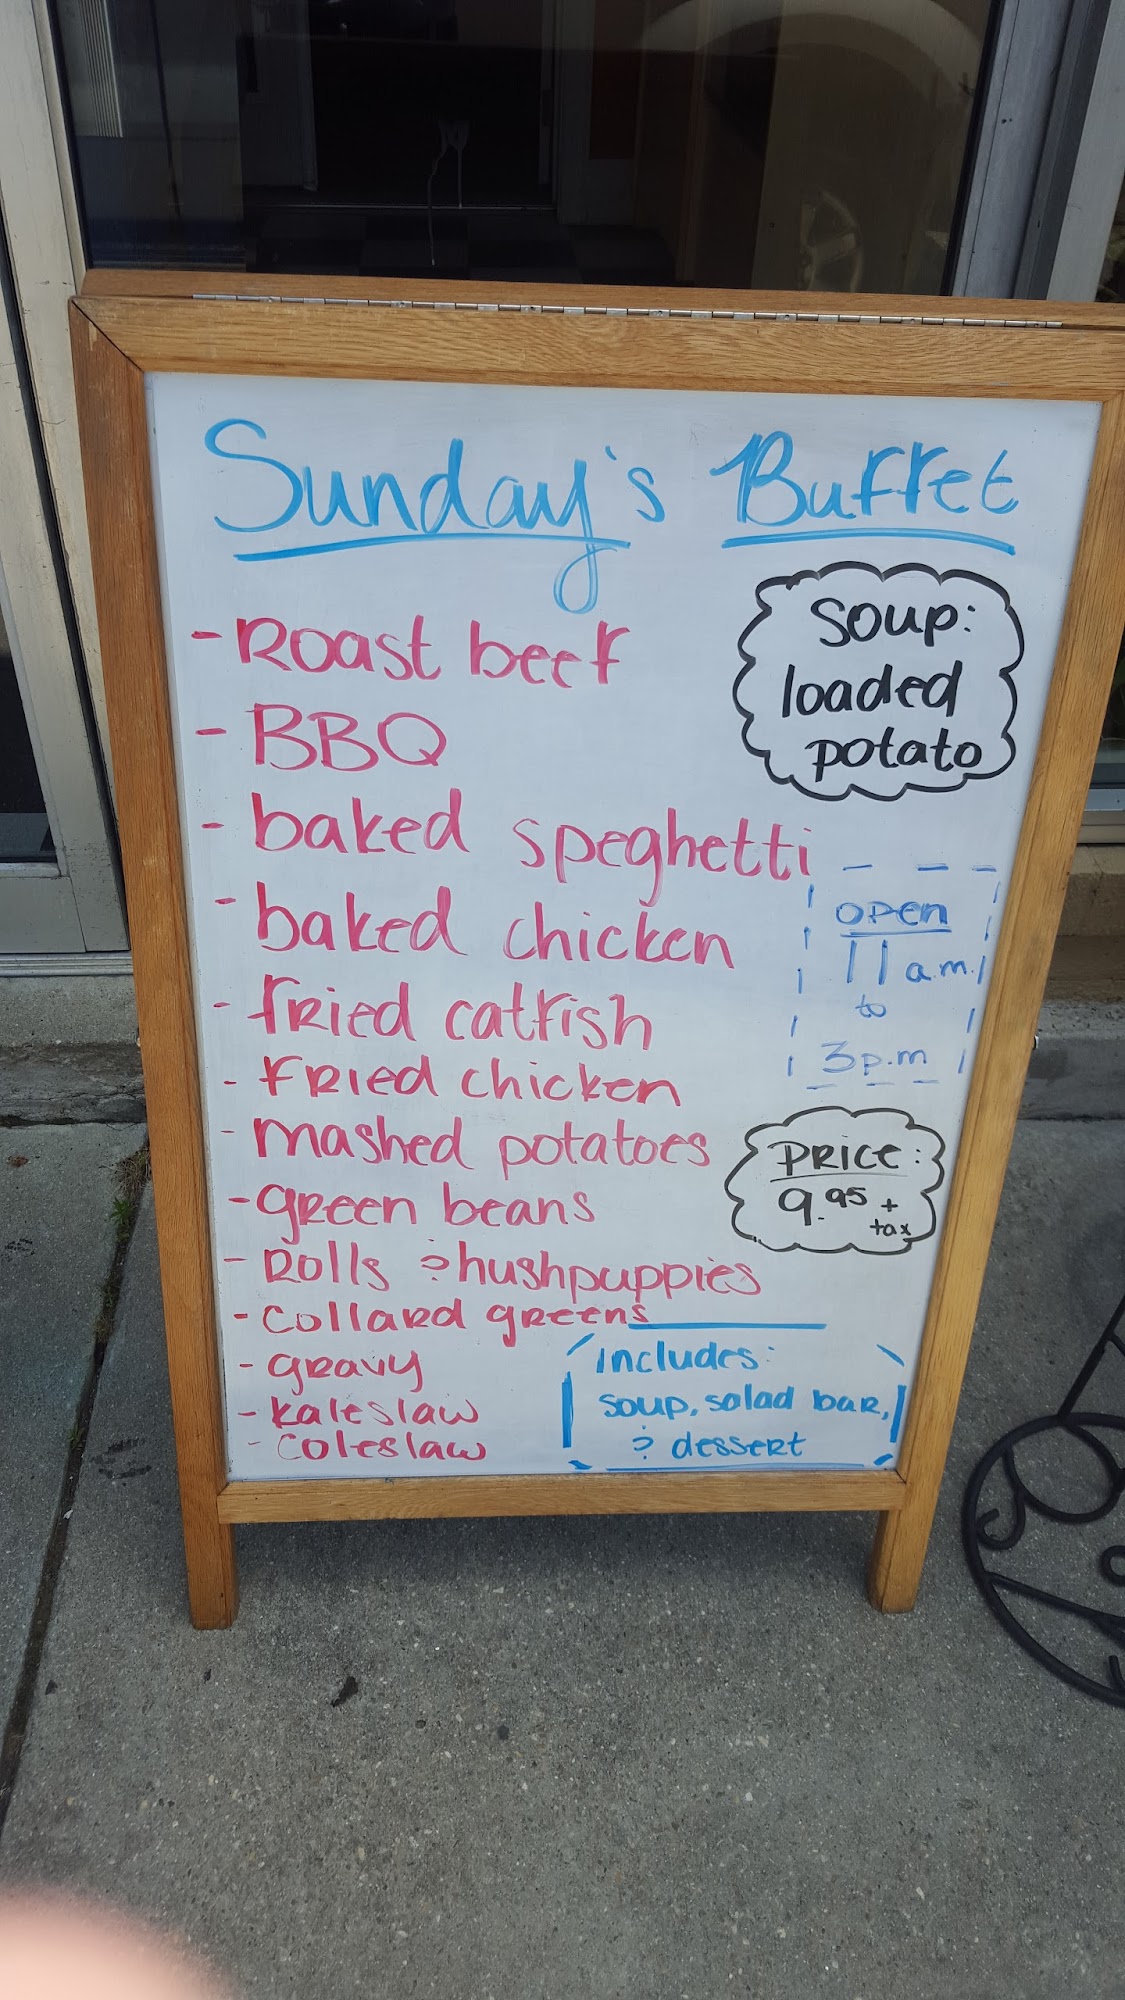 Sunday's Buffet
- Roast beef
- BBQ
- baked speghetti
- baked chicken
- fried catfish
- Fried chicken
- mashed potatoes
- green beans
- Rolls & hushpuppies
- collard greens
- gravy
- kaleslaw
- coleslaw
Soup:
loaded
potato
open
11 a.m.
to
3 p.m
PRICE:
9.95 +
tax
includes:
soup, salad bar,
& dessert